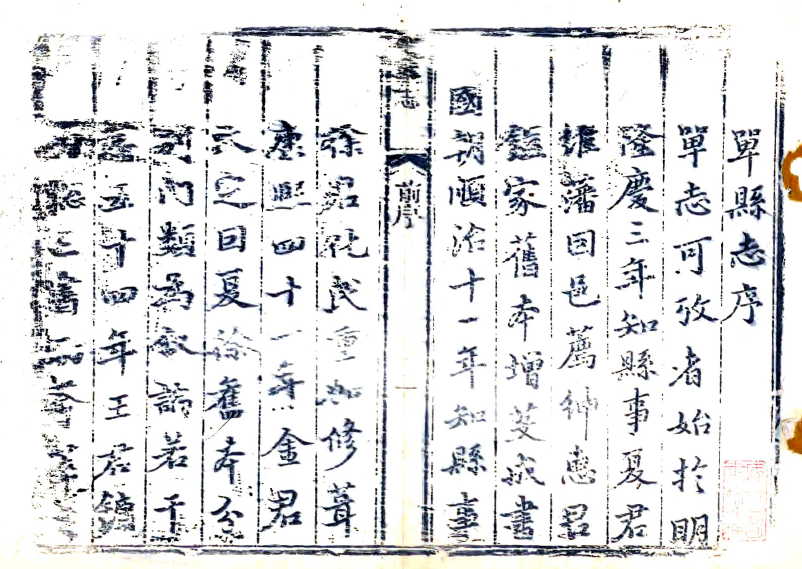 單縣志序
單志可攷者始於明
隆慶三年知縣事夏君
維藩因邑薦紳惠君
家舊本增芟成書
國朝順治十一年知縣事
志
前序
徐君化民重加修葺
康熙四十一年金君
之回夏徐舊本分
列門類為敘論若干
五十四年王君鎮
舊